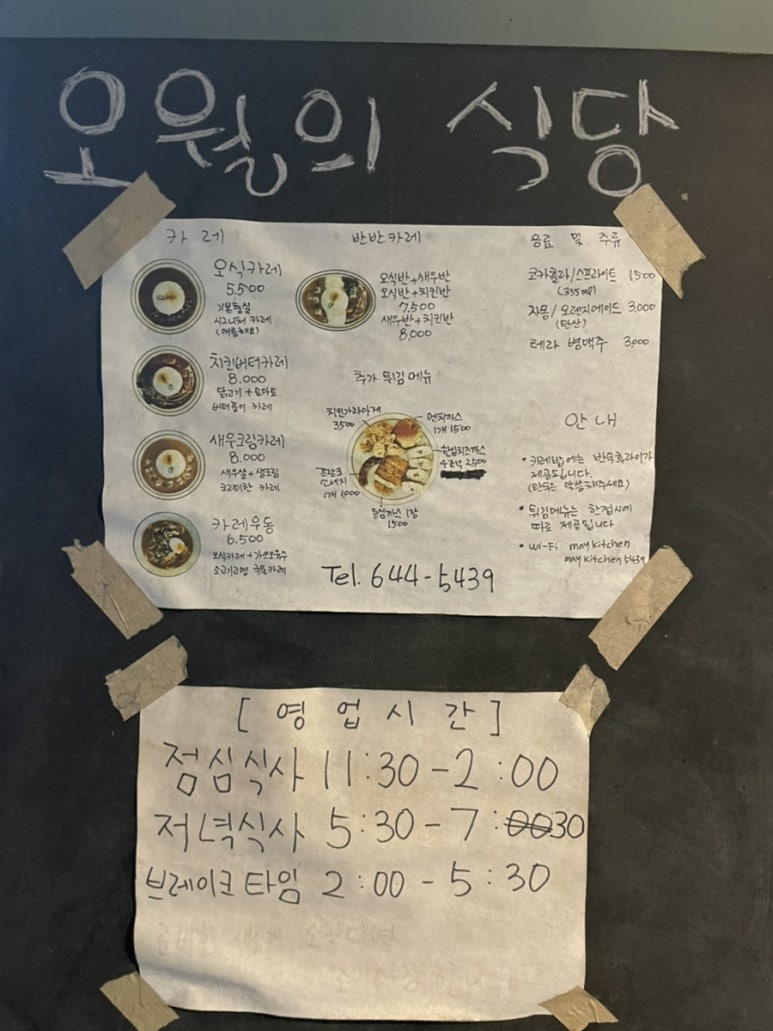 오월의 식당
카레
오식카레
5.500
기본충실
시그니처 카레
(매콤해요)
치킨버터카레
8.000
닭고기 + 토마토
버터풍미 카레
새우크림카레
8.000
새우살 + 생크림
크리미한 카레
카레우동
6.500
오식카레 + 가쓰오육수
소고기고명 국물카레
반반카레
오식반 + 새우반
오식반 + 치킨반
7,500
새우반 + 치킨반
8,000
추가 튀김 메뉴
치킨가라아게
3500
멘치까스
1개 1500
한입치즈까스
4조각 2500
프랑크
소세지
1개 1,000
등심까스 1장
1500
Tel. 644-5439
음료 및 주류
코카콜라/스프라이트 1500
(355ml)
자몽/오렌지에이드 3,000
(탄산)
테라 병맥주 3,000
안내
• 카레밥에는 반숙후라이가
제공됩니다.
(완숙은 말씀해주세요)
• 튀김메뉴는 한접시에
따로 제공됩니다
• Wi-Fi may kitchen
may kitchen 5439
[영업시간]
점심식사 11:30 - 2:00
저녁식사 5:30 - 7:0030
브레이크 타임 2:00 - 5:30